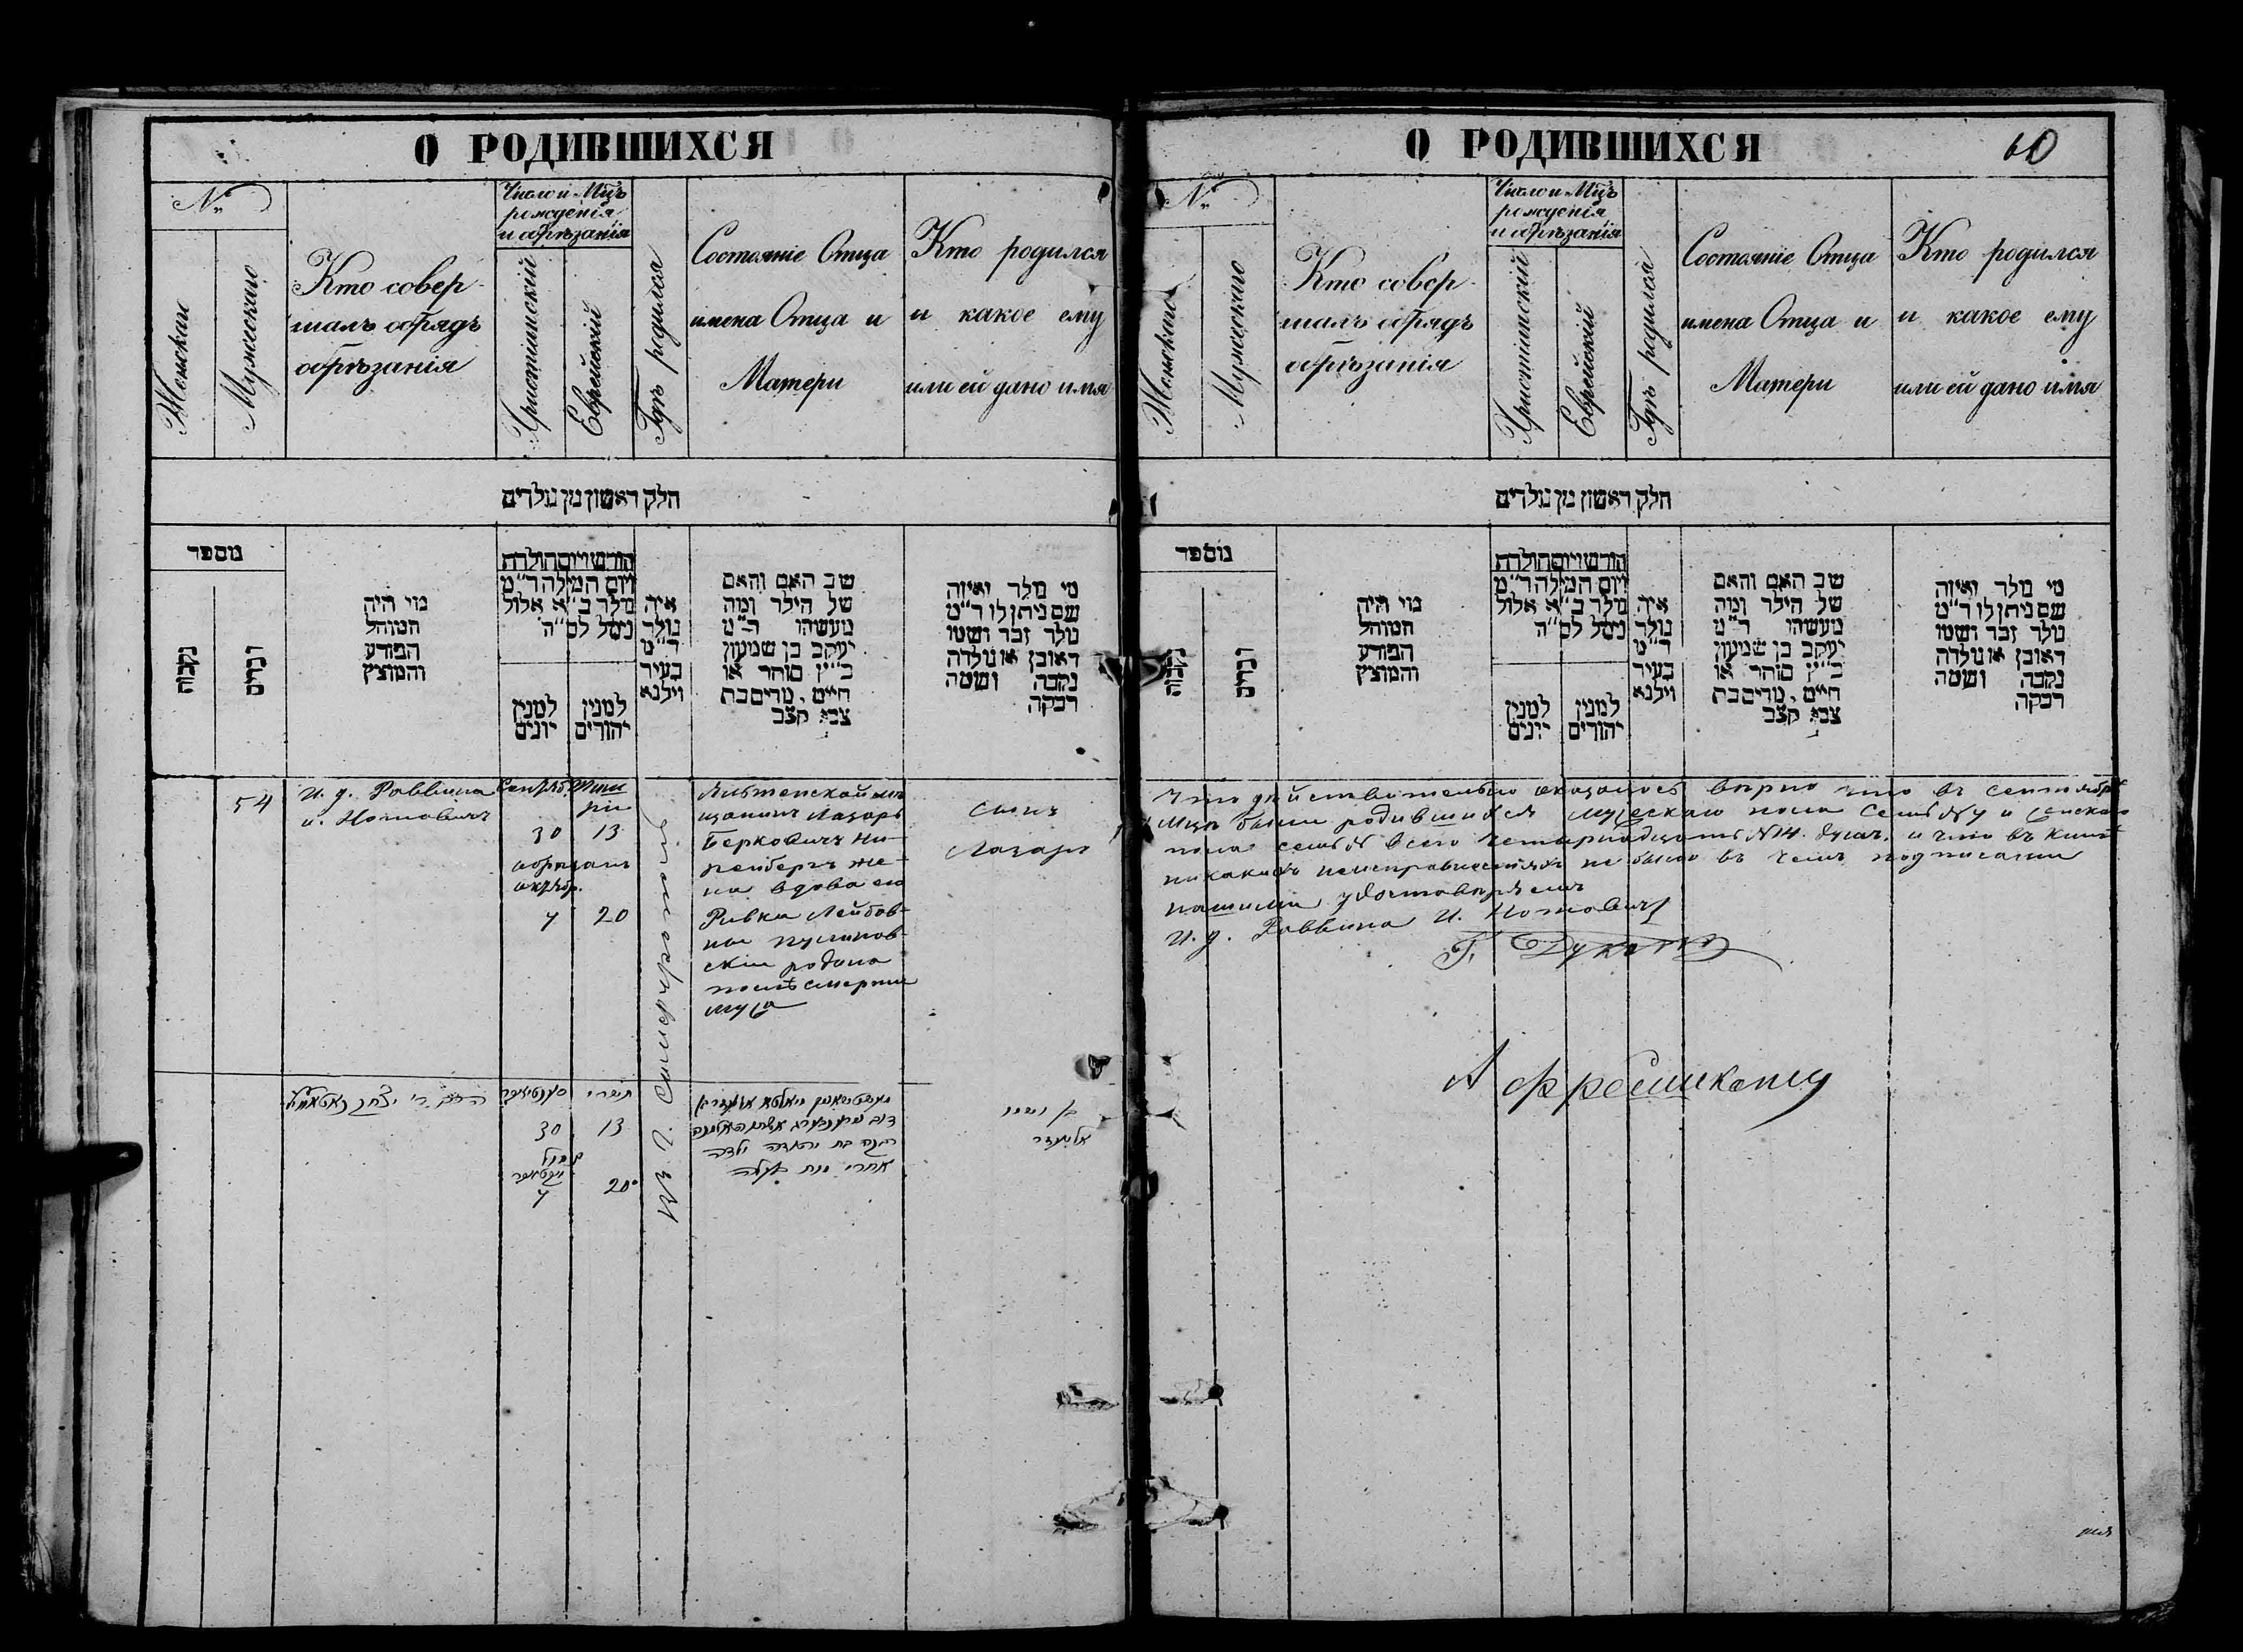 О РОДИВШИХСЯ
№
Женскаго
Мужескаго
Кто совер-
шалъ обрядъ
обрѣзанія
Число и Мцъ
рожденія
и обрѣзанія
Христіянскій
Еврейскій
Гдѣ родился
Состояніе Отца
имена Отца и
Матери
Кто родился
и какое ему
или ей дано имя
חלק ראשון מן נולדים
מספר
נקבות
זכרים
מי היה
המוהל
הפורע
והמוצץ
חודש ויום הולדת
ויום המילה ד״מ
נולד ב״א אלול
נימל לס״ה
למנין
יונים
למנין
יהודים
איה
נולד
ד״מ
בעיר
ווילנא
שב האם והאם
של הילד ומה
מעשהו ד״מ
יעקב בן שמעון
כ״ץ סוחר או
חייט, מרים בת
צבי קצב
מי נולד ואיזה
שם ניתן לו ד״מ
נולד זכר ושמו
ראובן או נולדה
נקבה ושמה
רבקה
54
И. д. Раввина
И. Нотовичъ
Сентяб.
Тиш
ри
30 13
обрѣзанъ
октяб.
7 20
В Г. Симферополѣ
Лазарь
Берковичъ
же-
на вдова его
Ривка Лейбов-
на
родила
послѣ смерти
мужа
сынъ
Лазарь
תשרי
30 13
7 20
בן ושמו
אליעזר
О РОДИВШИХСЯ
60
№
Женскаго
Мужескаго
Кто совер-
шалъ обрядъ
обрѣзанія
Число и Мцъ
рожденія
и обрѣзанія
Христіянскій
Еврейскій
Гдѣ родился
Состояніе Отца
имена Отца и
Матери
Кто родился
и какое ему
или ей дано имя
חלק ראשון מן נולדים
מספר
נקבות
זכרים
מי היה
המוהל
הפורע
והמוצץ
חודש ויום הולדת
ויום המילה ד״מ
נולד ב״א אלול
נימל לס״ה
למנין
יונים
למנין
יהודים
איה
נולד
ד״מ
בעיר
ווילנא
שב האם והאם
של הילד ומה
מעשהו ד״מ
יעקב בן שמעון
כ״ץ סוחר או
חייט, מרים בת
צבי קצב
מי נולד ואיזה
שם ניתן לו ד״מ
נולד זכר ושמו
ראובן או נולדה
נקבה ושמה
רבקה
Что дѣйствительно оказалось вѣрно что въ сентябрѣ
Мцѣ были родившихся мужескаго пола семь №7 и женскаго
пола семь всего четырнадцать №14 душъ и что въ книгѣ
никакихъ неисправностяхъ не было въ чемъ подписами
нашими удостовѣряемъ
И. д. Раввина И. Нотовичъ